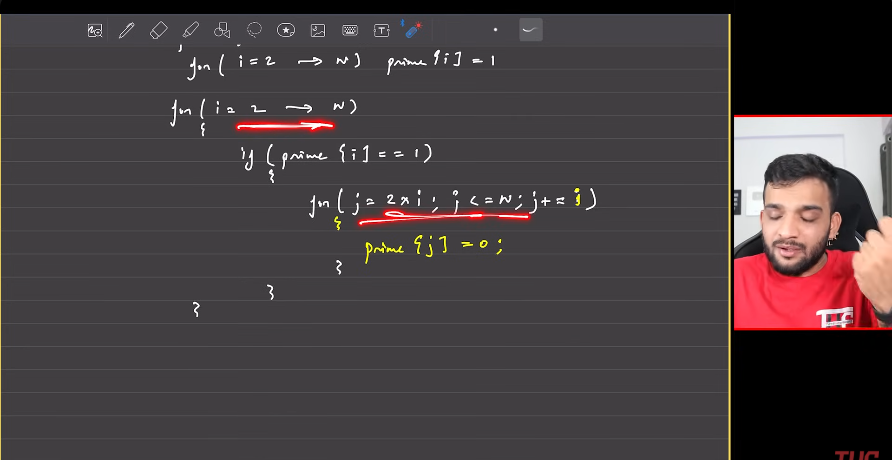 for( i = 2 → N) prime[i] = 1
for( i = 2 → N)
{
if (prime[i] == 1)
{
for( j = 2 x i ; j <= N; j += i )
{
prime[j] = 0 ;
}
}
}